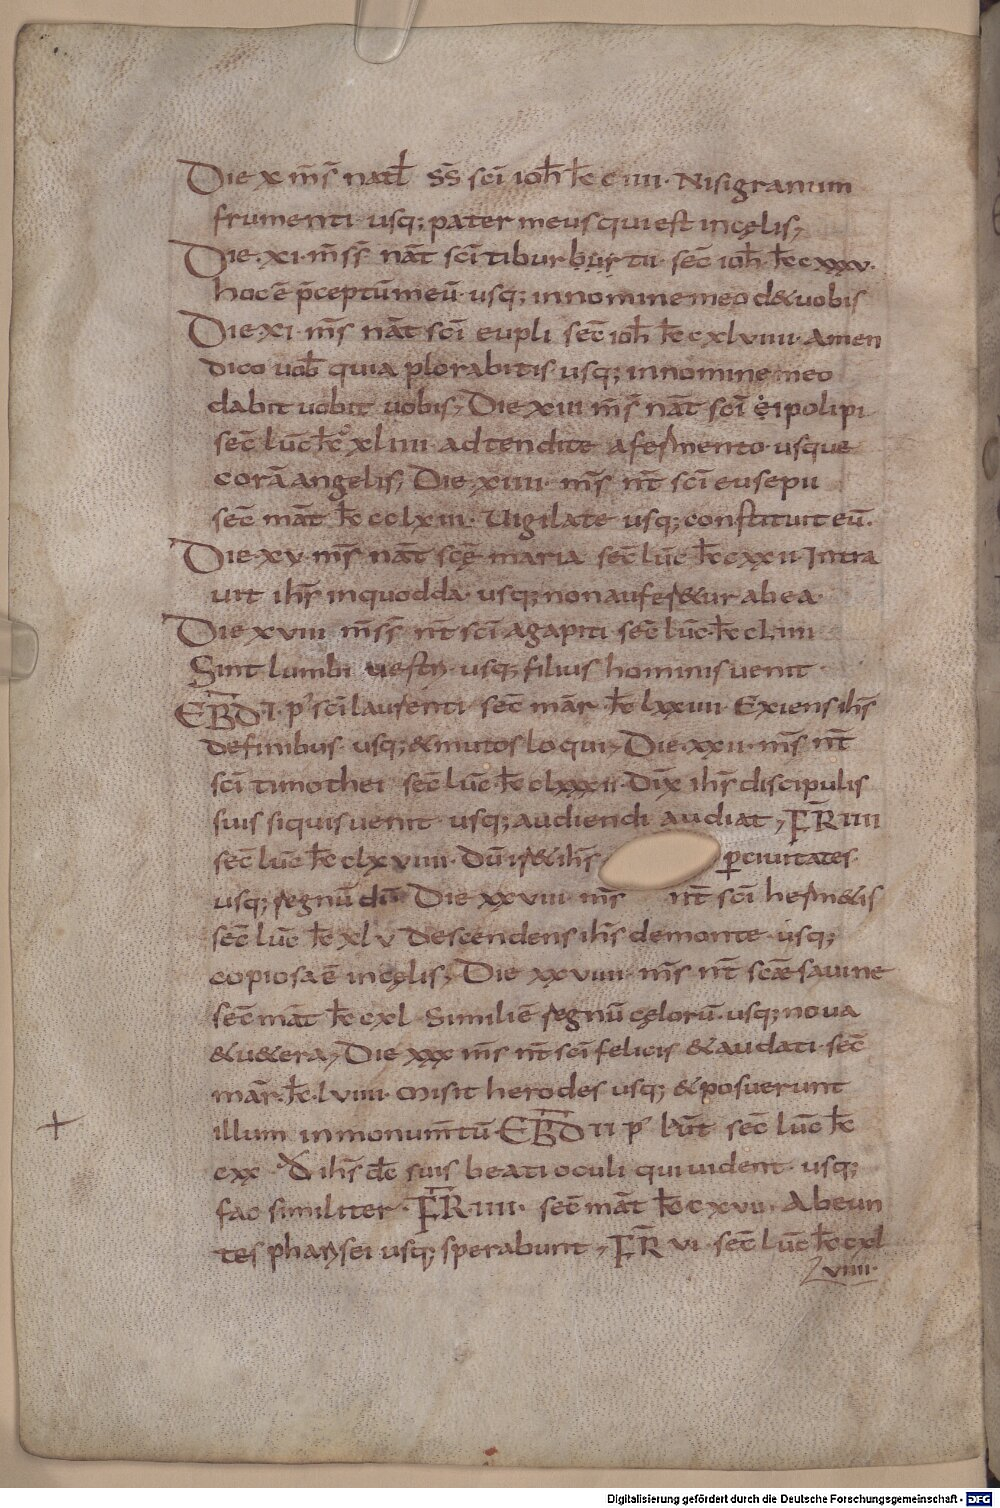 Die x m̄s̄ natl̄ ss̄ sc̄i ioh̄ k̄ c iiii · Nisi granum
frumenti usq; pater meus qui est in cęlis;
Die · xi · m̄ss̄ nāt sc̄i tiburburtii · sec̄ ioh̄ · k̄ c xxxv ·
hoc ē p̄ceptū meū · usq; in nomine meo d&uobis
Die xi · m̄s̄ nāt sc̄i eupli sec̄ ioh̄ k̄ cxlviiii · Amen
dico uob̄ quia plorabitis usq; in nomine meo
dabit uobit uobis; Die xiii m̄s̄ nāt sc̄i eipolipi
sec̄ lūc k̄ xliiii · adtendite a fermento · usque
corā angelis; Die xiiii · m̄s̄ nt̄ sc̄i eusepii
sec̄ māt k̄ cclxiii · Uigilate usq; constituit eū ·
Die · xv · m̄s̄ nāt scē maria sec̄ lūc k̄ cxxii · Intra
uit ih̄s in quodda · usq; non aufer&ur ab ea ·
Die xviii m̄ss̄ nt̄ sc̄i agapiti sec̄ lūc · k̄ cliiii
Sint lumbi uestri · usq; filius hominis uenit ·
EBD̄ I · p̄ sc̄i laurenti · sec̄ mār k̄ lxxiiii · Exiens ih̄s
de finibus · usq; & mutos loqui; Die · xxii · m̄s̄ nt̄
sc̄i timothei sec̄ lūc · k̄ clxxxii · Dix̄ ih̄s discipulis
suis si quis uenit · usq; audiendi audiat; FR̄ iiii
sec̄ lūc k̄ clxviiii · Dū ir& ih̄s p̱ ciuitates ·
usq; regnū dī Die xxviii m̄s̄ nt̄ sc̄i herm&is
sec̄ lūc k̄ xlv Descendens ih̄s de monte · usq;
copiosa ē in cęlis; Die xxviiii · m̄s̄ nt̄ scæ sauine
sec̄ māt k̄ cxl · Simili ē regnū cęlorū · usq; noua
& u&era; Die xxx m̄s̄ nt̄ sc̄i felicis & audati · sec̄
mār · k̄ · lviiii · misit herodes usq; & posuerunt
illum in monum̄tū EBD̄ ii p̄ lāūt sec̄ lūc k̄
cxx · D̄ ih̄s dc̄ suis beati oculi qui uident · usq;
fac similiter · FR̄ · iiii · sec̄ māt k̄ cxvii · Abeun
tes pharisei usq; sperabunt; FR̄ vi · sec̄ lūc k̄ cxl
viiii ·
Digitalisierung gefördert durch die Deutsche Forschungsgemeinschaft - DFG